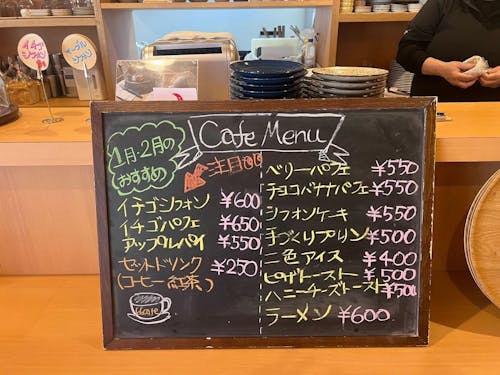 イチゴ
シフォン
Cafe Menu
1月・2月の
おすすめ
イチゴシフォン ¥600
イチゴパフェ ¥650
アップルパイ ¥550
セットドリンク ¥250
(コーヒー 紅茶)
Cafe
ベリーパフェ ¥550
チョコバナナパフェ ¥550
シフォンケーキ ¥550
手づくりプリン ¥500
二色アイス ¥400
ピザトースト ¥500
ハニーチーズトースト ¥500
ラーメン ¥600